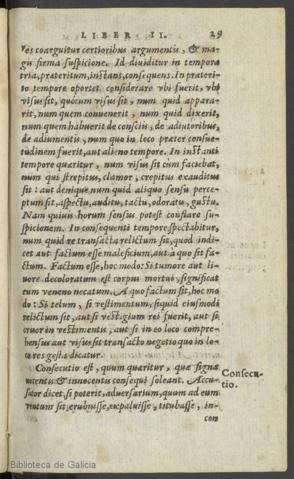 LIBER II. 29
res coarguitur certioribus argumentis, & ma-
gis firma suspicione. Id diuiditur in tempora
tria, præteritum, instans, consequens. In præteri-
to tempore oportet considerare vbi fuerit, vbi
visus sit, quocum visus sit, num quid appara-
rit, num quem conuenerit, num quid dixerit,
num quem habuerit de consciis, de adiutoribus,
de adiumentis, num quo in loco præter consue-
tudinem fuerit, aut alieno tempore. In instanti
tempore quæritur, num visus sit cùm faciebat,
num qui strepitus, clamor, crepitus exauditus
sit: aut denique num quid aliquo sensu perce-
ptum sit, aspectu, auditu, tactu, odoratu, gustu.
Nam quiuis horum sensus potest conflare su-
spicionem. In consequenti tempore spectabitur,
num quid re transacta relictum sit, quod indi-
cet aut factum esse maleficium, aut a quo sit fa-
ctum. Factum esse, hoc modo: Si tumore aut li-
uore decoloratum est corpus mortui, significat
eum veneno necatum. A quo factum sit, hoc mo
do: Si telum, si vestimentum, siquid eiusmodi
relictum sit, aut si vestigium rei fuerit, aut si
cruor in vestimentis, aut si in eo loco compre-
hensus aut visus sit transacto negotio quo in lo-
co res gesta dicatur.
Consecutio est, quum quæritur, quæ signa
nocentis & innocentis consequi soleant. Accu-
sator dicet, si poterit, aduersarium, quom ad eum
ventum sit, erubuisse, expaluisse, titubasse, in-
con
Consecu-
tio.
Biblioteca de Galicia